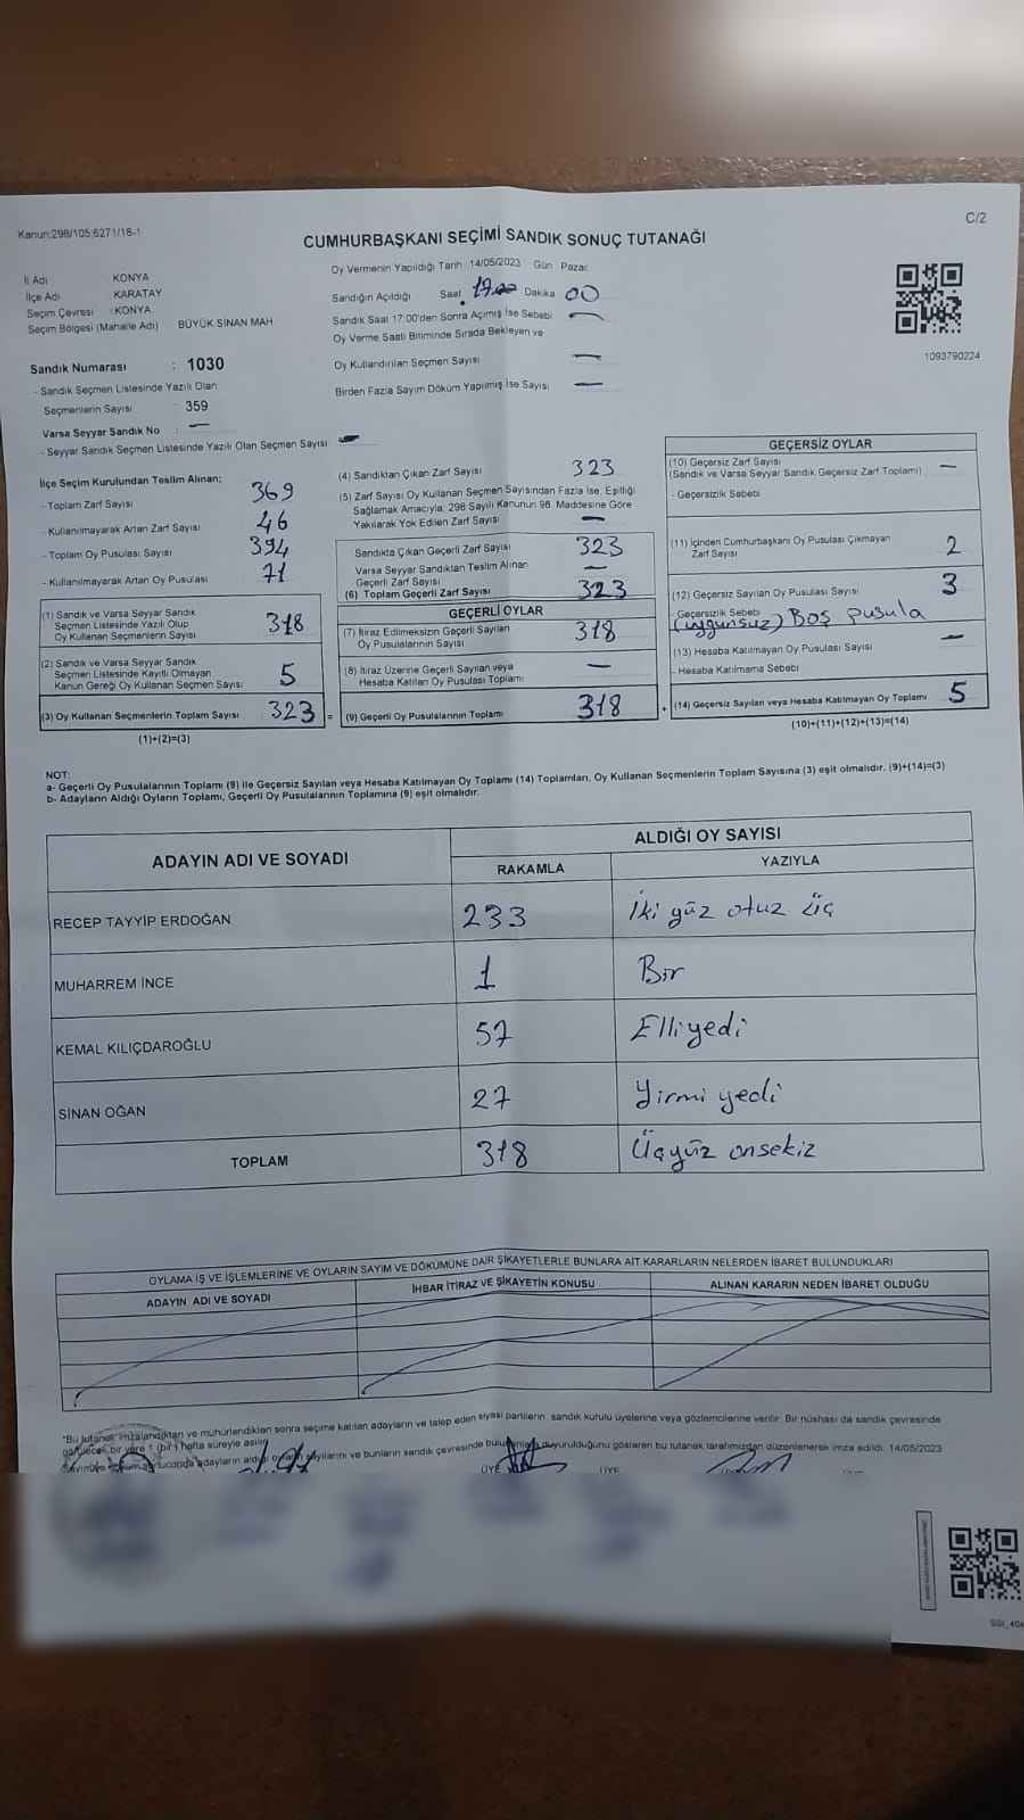 Kanun:298/105;6271/18-1
C/2
CUMHURBAŞKANI SEÇİMİ SANDIK SONUÇ TUTANAĞI
İl Adı KONYA
İlçe Adı KARATAY
Seçim Çevresi : KONYA
Seçim Bölgesi (Mahalle Adı) BÜYÜK SİNAN MAH
Sandık Numarası : 1030
- Sandık Seçmen Listesinde Yazılı Olan
Seçmenlerin Sayısı 359
Varsa Seyyar Sandık No : —
- Seyyar Sandık Seçmen Listesinde Yazılı Olan Seçmen Sayısı
Oy Vermenin Yapıldığı Tarih : 14/05/2023 Gün Pazar
Sandığın Açıldığı Saat Dakika 00
Sandık Saat 17:00'den Sonra Açılmış İse Sebebi
Oy Verme Saati Bitiminde Sırada Bekleyen ve
Oy Kullandırılan Seçmen Sayısı —
Birden Fazla Sayım Döküm Yapılmış İse Sayısı —
1093790224
İlçe Seçim Kurulundan Teslim Alınan;
- Toplam Zarf Sayısı 369
- Kullanılmayarak Artan Zarf Sayısı 46
- Toplam Oy Pusulası Sayısı 394
- Kullanılmayarak Artan Oy Pusulası 71
(1) Sandık ve Varsa Seyyar Sandık
Seçmen Listesinde Yazılı Olup
Oy Kullanan Seçmenlerin Sayısı 318
(2) Sandık ve Varsa Seyyar Sandık
Seçmen Listesinde Kayıtlı Olmayan
Kanun Gereği Oy Kullanan Seçmen Sayısı 5
(3) Oy Kullanan Seçmenlerin Toplam Sayısı 323 =
(1)+(2)=(3)
(4) Sandıktan Çıkan Zarf Sayısı 323
(5) Zarf Sayısı Oy Kullanan Seçmen Sayısından Fazla İse, Eşitliği
Sağlamak Amacıyla, 298 Sayılı Kanunun 98. Maddesine Göre
Yakılarak Yok Edilen Zarf Sayısı —
Sandıkta Çıkan Geçerli Zarf Sayısı 323
Varsa Seyyar Sandıktan Teslim Alınan
Geçerli Zarf Sayısı —
(6) Toplam Geçerli Zarf Sayısı 323
GEÇERLİ OYLAR
(7) İtiraz Edilmeksizin Geçerli Sayılan
Oy Pusulalarının Sayısı 318
(8) İtiraz Üzerine Geçerli Sayılan veya
Hesaba Katılan Oy Pusulası Toplamı —
(9) Geçerli Oy Pusulalarının Toplamı 318 +
GEÇERSİZ OYLAR
(10) Geçersiz Zarf Sayısı
(Sandık ve Varsa Seyyar Sandık Geçersiz Zarf Toplamı) —
- Geçersizlik Sebebi
(11) İçinden Cumhurbaşkanı Oy Pusulası Çıkmayan
Zarf Sayısı 2
(12) Geçersiz Sayılan Oy Pusulası Sayısı 3
- Geçersizlik Sebebi
(uygunsuz) Boş pusula
(13) Hesaba Katılmayan Oy Pusulası Sayısı —
- Hesaba Katılmama Sebebi
(14) Geçersiz Sayılan veya Hesaba Katılmayan Oy Toplamı 5
(10)+(11)+(12)+(13)=(14)
NOT:
a- Geçerli Oy Pusulalarının Toplamı (9) ile Geçersiz Sayılan veya Hesaba Katılmayan Oy Toplamı (14) Toplamları, Oy Kullanan Seçmenlerin Toplam Sayısına (3) eşit olmalıdır. (9)+(14)=(3)
b- Adayların Aldığı Oyların Toplamı, Geçerli Oy Pusulalarının Toplamına (9) eşit olmalıdır.
ADAYIN ADI VE SOYADI
ALDIĞI OY SAYISI
RAKAMLA YAZIYLA
RECEP TAYYİP ERDOĞAN 233 İki yüz otuz üç
MUHARREM İNCE 1 Bir
KEMAL KILIÇDAROĞLU 57 Elliyedi
SİNAN OĞAN 27 Yirmi yedi
TOPLAM 318 Üçyüz onsekiz
OYLAMA İŞ VE İŞLEMLERİNE VE OYLARIN SAYIM VE DÖKÜMÜNE DAİR ŞİKAYETLERLE BUNLARA AİT KARARLARIN NELERDEN İBARET BULUNDUKLARI
ADAYIN ADI VE SOYADI İHBAR İTİRAZ VE ŞİKAYETİN KONUSU ALINAN KARARIN NEDEN İBARET OLDUĞU
"Bu tutanak imzalandıktan ve mühürlendikten sonra seçime katılan adayların ve talep eden siyasi partilerin sandık kurulu üyelerine veya gözlemcilerine verilir. Bir nüshası da sandık çevresinde
görülecek bir yere 1 (bir) hafta süreyle asılır.
sonucunda adayların aldığı oyların sayılarını ve bunların sandık çevresinde duyurulduğunu gösteren bu tutanak tarafımızdan düzenlenerek imza edildi. 14/05/2023
ÜYE ÜYE